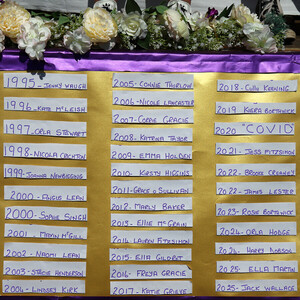 1995 - Jenny Waugh
1996 - Kate McLeish
1997 - Orla Stewart
1998 - Nicola Crichton
1999 - Joanna Newbigging
2000 - Angus Lean
2000 - Sophie Singh
2001 - McGill
2002 - Naomi Lean
2003 - Stacie Henderson
2004 - Lindsey Kirk
2005 - Connie Thurlow
2006 - Nicole Lancaster
2007 - Corrie Gracie
2008 - Katrina Taylor
2009 - Emma Holden
2010 - Kirsty Higgins
2011 - Grace O'Sullivan
2012 - Marly Baker
2013 - Ellie McGrain
2014 - Lauren Fitzsimon
2015 - Ella Gilbert
2016 - Freja Gracie
2017 - Katie Grieve
2018 - Keening
2019 - Kiera Borthwick
2020 "COVID"
2021 - Jess Fitzsimon
2022 - Brooke Oraney
2022 - James Lester
2023 - Rosie Borthwick
2024 - Orla Hodge
2024 - Harry Dobson
2025 - Ella Martin
2025 - Jack Wallace